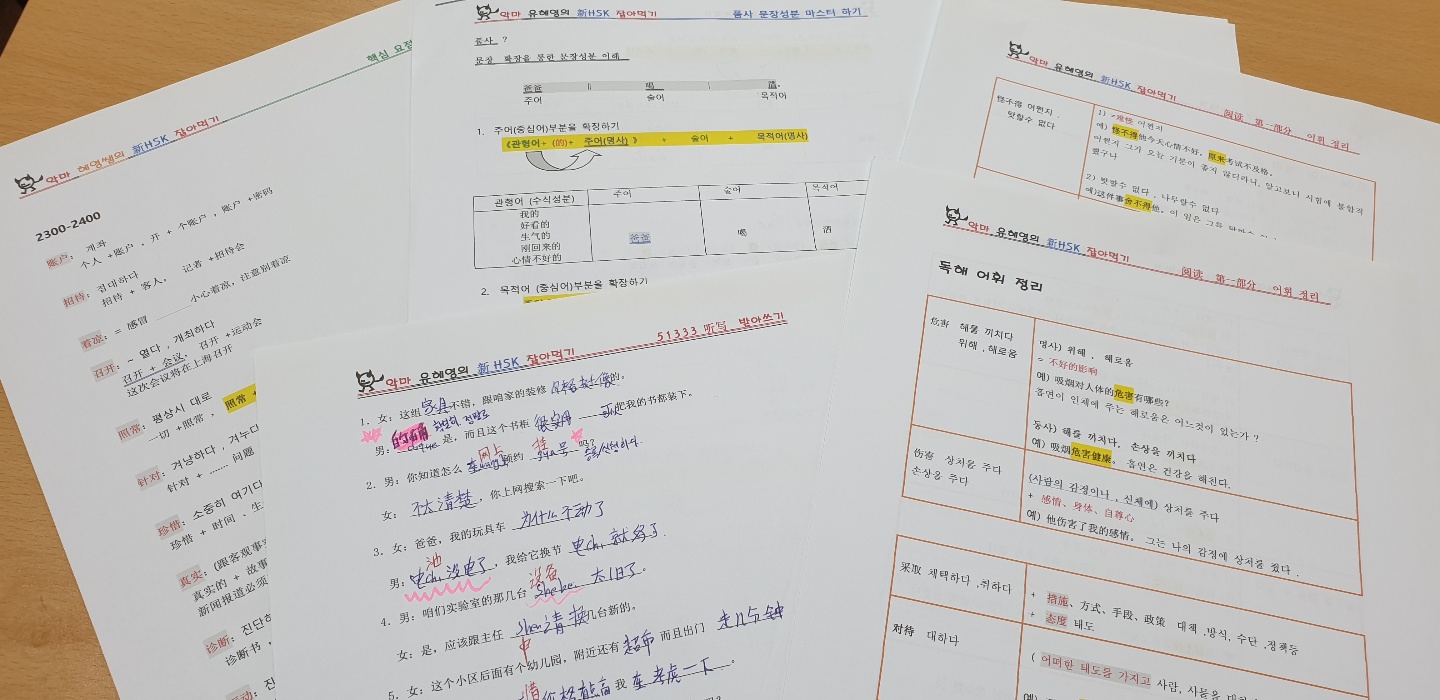 핵심 요점
악마 혜영쌤의 新HSK 잡아먹기
2300-2400
账户: 계좌
个人 +账户 , 开 + 个账户 , 账户 +密码
招待: 접대하다
招待 + 客人, 记者 +招待会
着凉: = 感冒 小心着凉, 注意别着凉
召开: ~ 열다 , 개최하다
召开 + 会议, 召开 +运动会
这次会议将在上海召开
照常: 평상시 대로
一切 +照常 , 照常 +
针对: 겨냥하다 , 겨누다
针对 + …… 问题
珍惜: 소중히 여기다
珍惜 + 时间 、生
真实: (跟客观事实
真实的 + 故事
新闻报道必须
诊断: 진단하
诊断书 ,
악마 윤혜영의 新HSK 잡아먹기
품사 문장성분 마스터 하기
품사 ?
문장 확장을 통한 문장성분 이해
爸爸 | 喝 | 酒。
주어 술어 목적어
1. 주어(중심어)부분을 확장하기
《관형어+ (的)+ 주어(명사) 》 + 술어 + 목적어(명사)
관형어 (수식성분) 주어 술어 목적어
我的
好看的
生气的 爸爸 喝 酒
刚回来的
心情不好的
2. 목적어 (중심어)부분을 확장하기
악마 윤혜영의 新HSK 잡아먹기
51333 听写 받아쓰기
1. 女: 这组家具不错, 跟咱家的装修风格挺像的。
的确
男: 是, 而且这个书柜 很实用 把我的书都装下。
网上 挂
2. 男: 你知道怎么 预约 号 吗?
女: 不太清楚, 你上网搜索一下吧。
3. 女: 爸爸, 我的玩具车 为什么不动了
池
男: 电chi 没电了, 我给它换节 电chi 就好了.
设备
4. 男: 咱们实验室的那几台 shebei 太旧了。
女: 是, 应该跟主任 shen请换几台新的。
申
5. 女: 这个小区后面有个幼儿园, 附近还有 超市 而且出门 走几分钟
我 再考虑一下。
악마 윤혜영의 新HSK 잡아먹기
阅读 第一部分 어휘 정리
怪不得 어쩐지 .
탓할수 없다
1) =难怪 어쩐지
예) 怪不得他今天心情不好, 原来考试不及格。
어쩐지 그가 오늘 기분이 좋지 않더라니, 알고보니 시험에 불합격
했구나
2) 탓할수 없다 , 나무랄수 없다
악마 윤혜영의 新HSK 잡아먹기
阅读 第一部分 어휘 정리
독해 어휘 정리
危害 해를 끼치다
위해 , 해로움
명사) 위해 , 해로움
= 不好的影响
예) 吸烟对人体的危害有哪些?
흡연이 인체에 주는 해로움은 어느것이 있는가 ?
동사) 해를 끼치다, 손상을 끼치다
예) 吸烟危害健康。 흡연은 건강을 해친다.
伤害 상처를 주다
손상을 주다
(사람의 감정이나 , 신체에) 상처를 주다
+ 感情、身体、自尊心
예) 他伤害了我的感情。 그는 나의 감정에 상처를 줬다 .
采取 채택하다 ,취하다
+ 措施、方式、手段、政策 대책 ,방식, 수단 ,정책등
+ 态度 태도
对待 대하다
( 어떠한 태도을 가지고 사람, 사물을